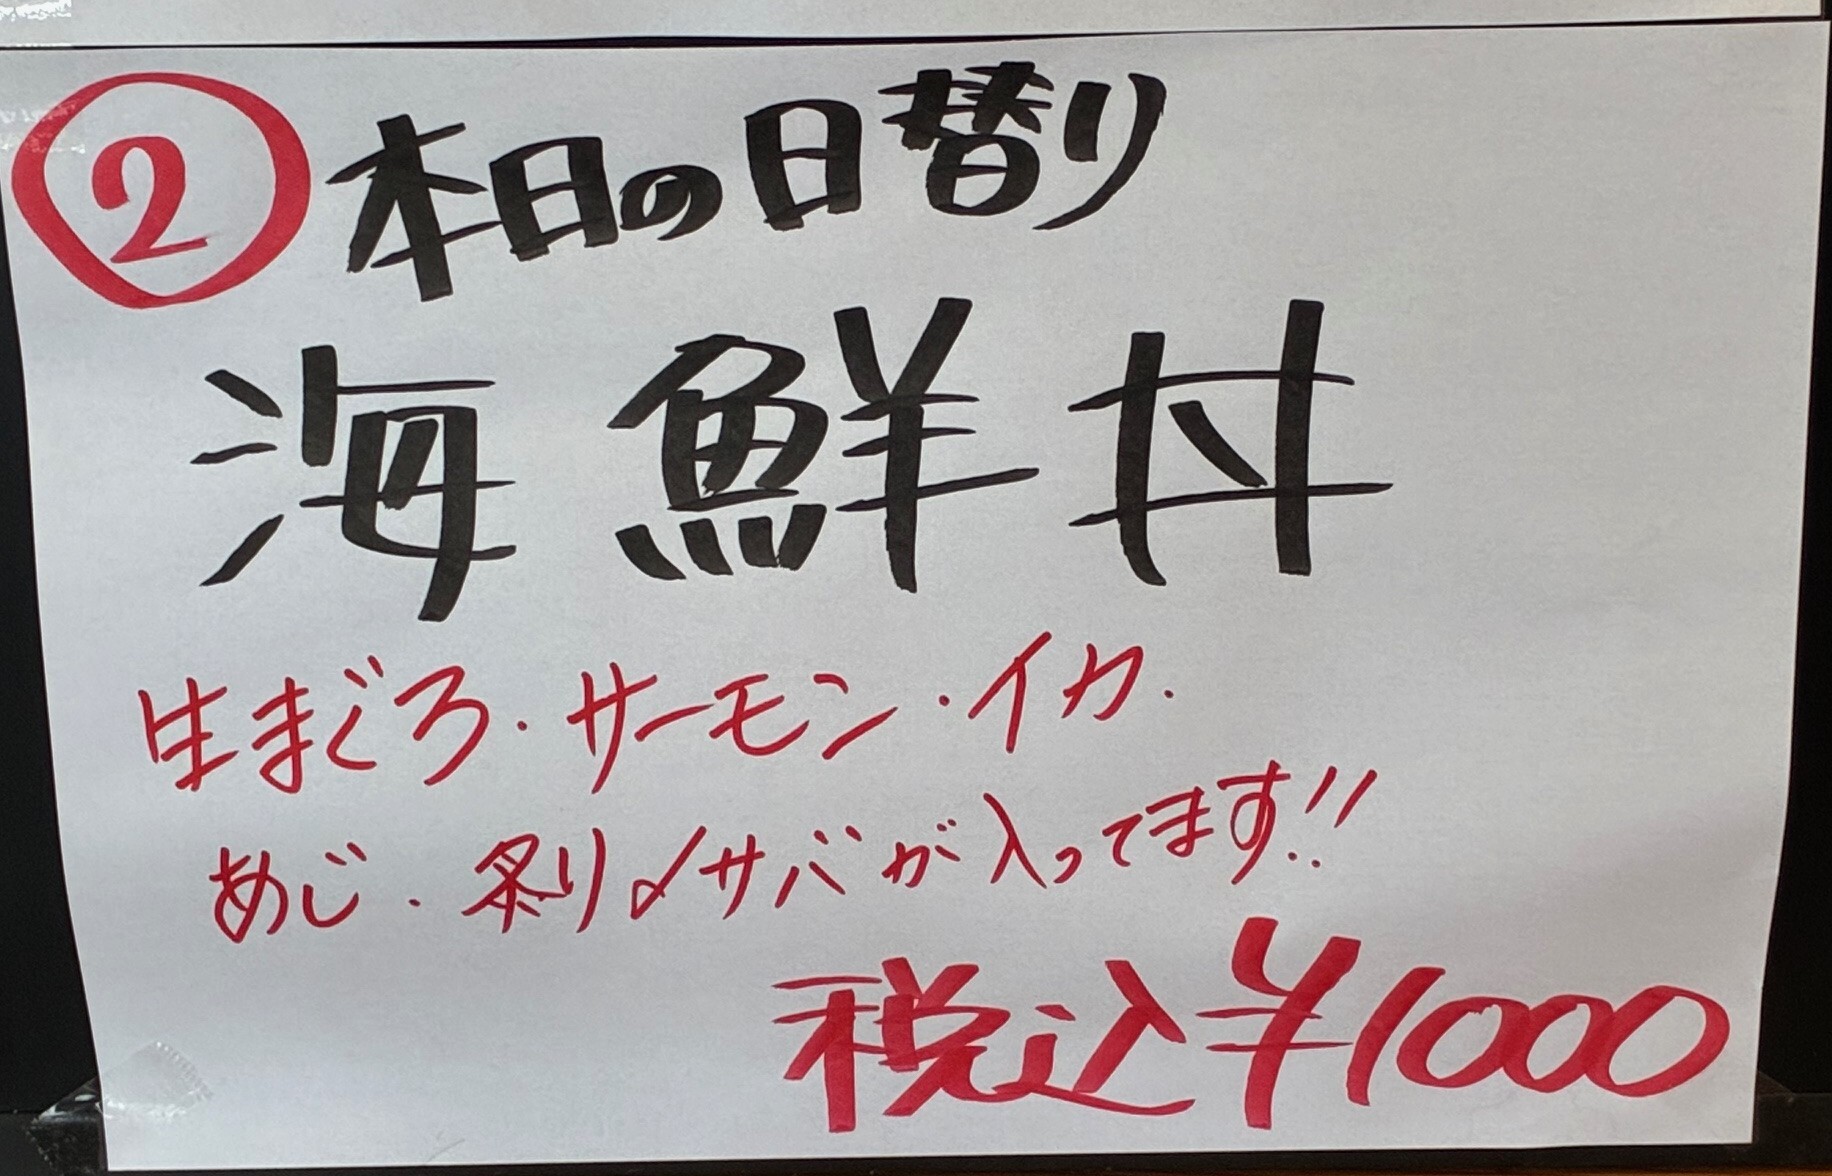 ② 本日の日替り
海鮮丼
生まぐろ・サーモン・イカ・
あじ・炙り〆サバが入ってます!!
税込¥1000